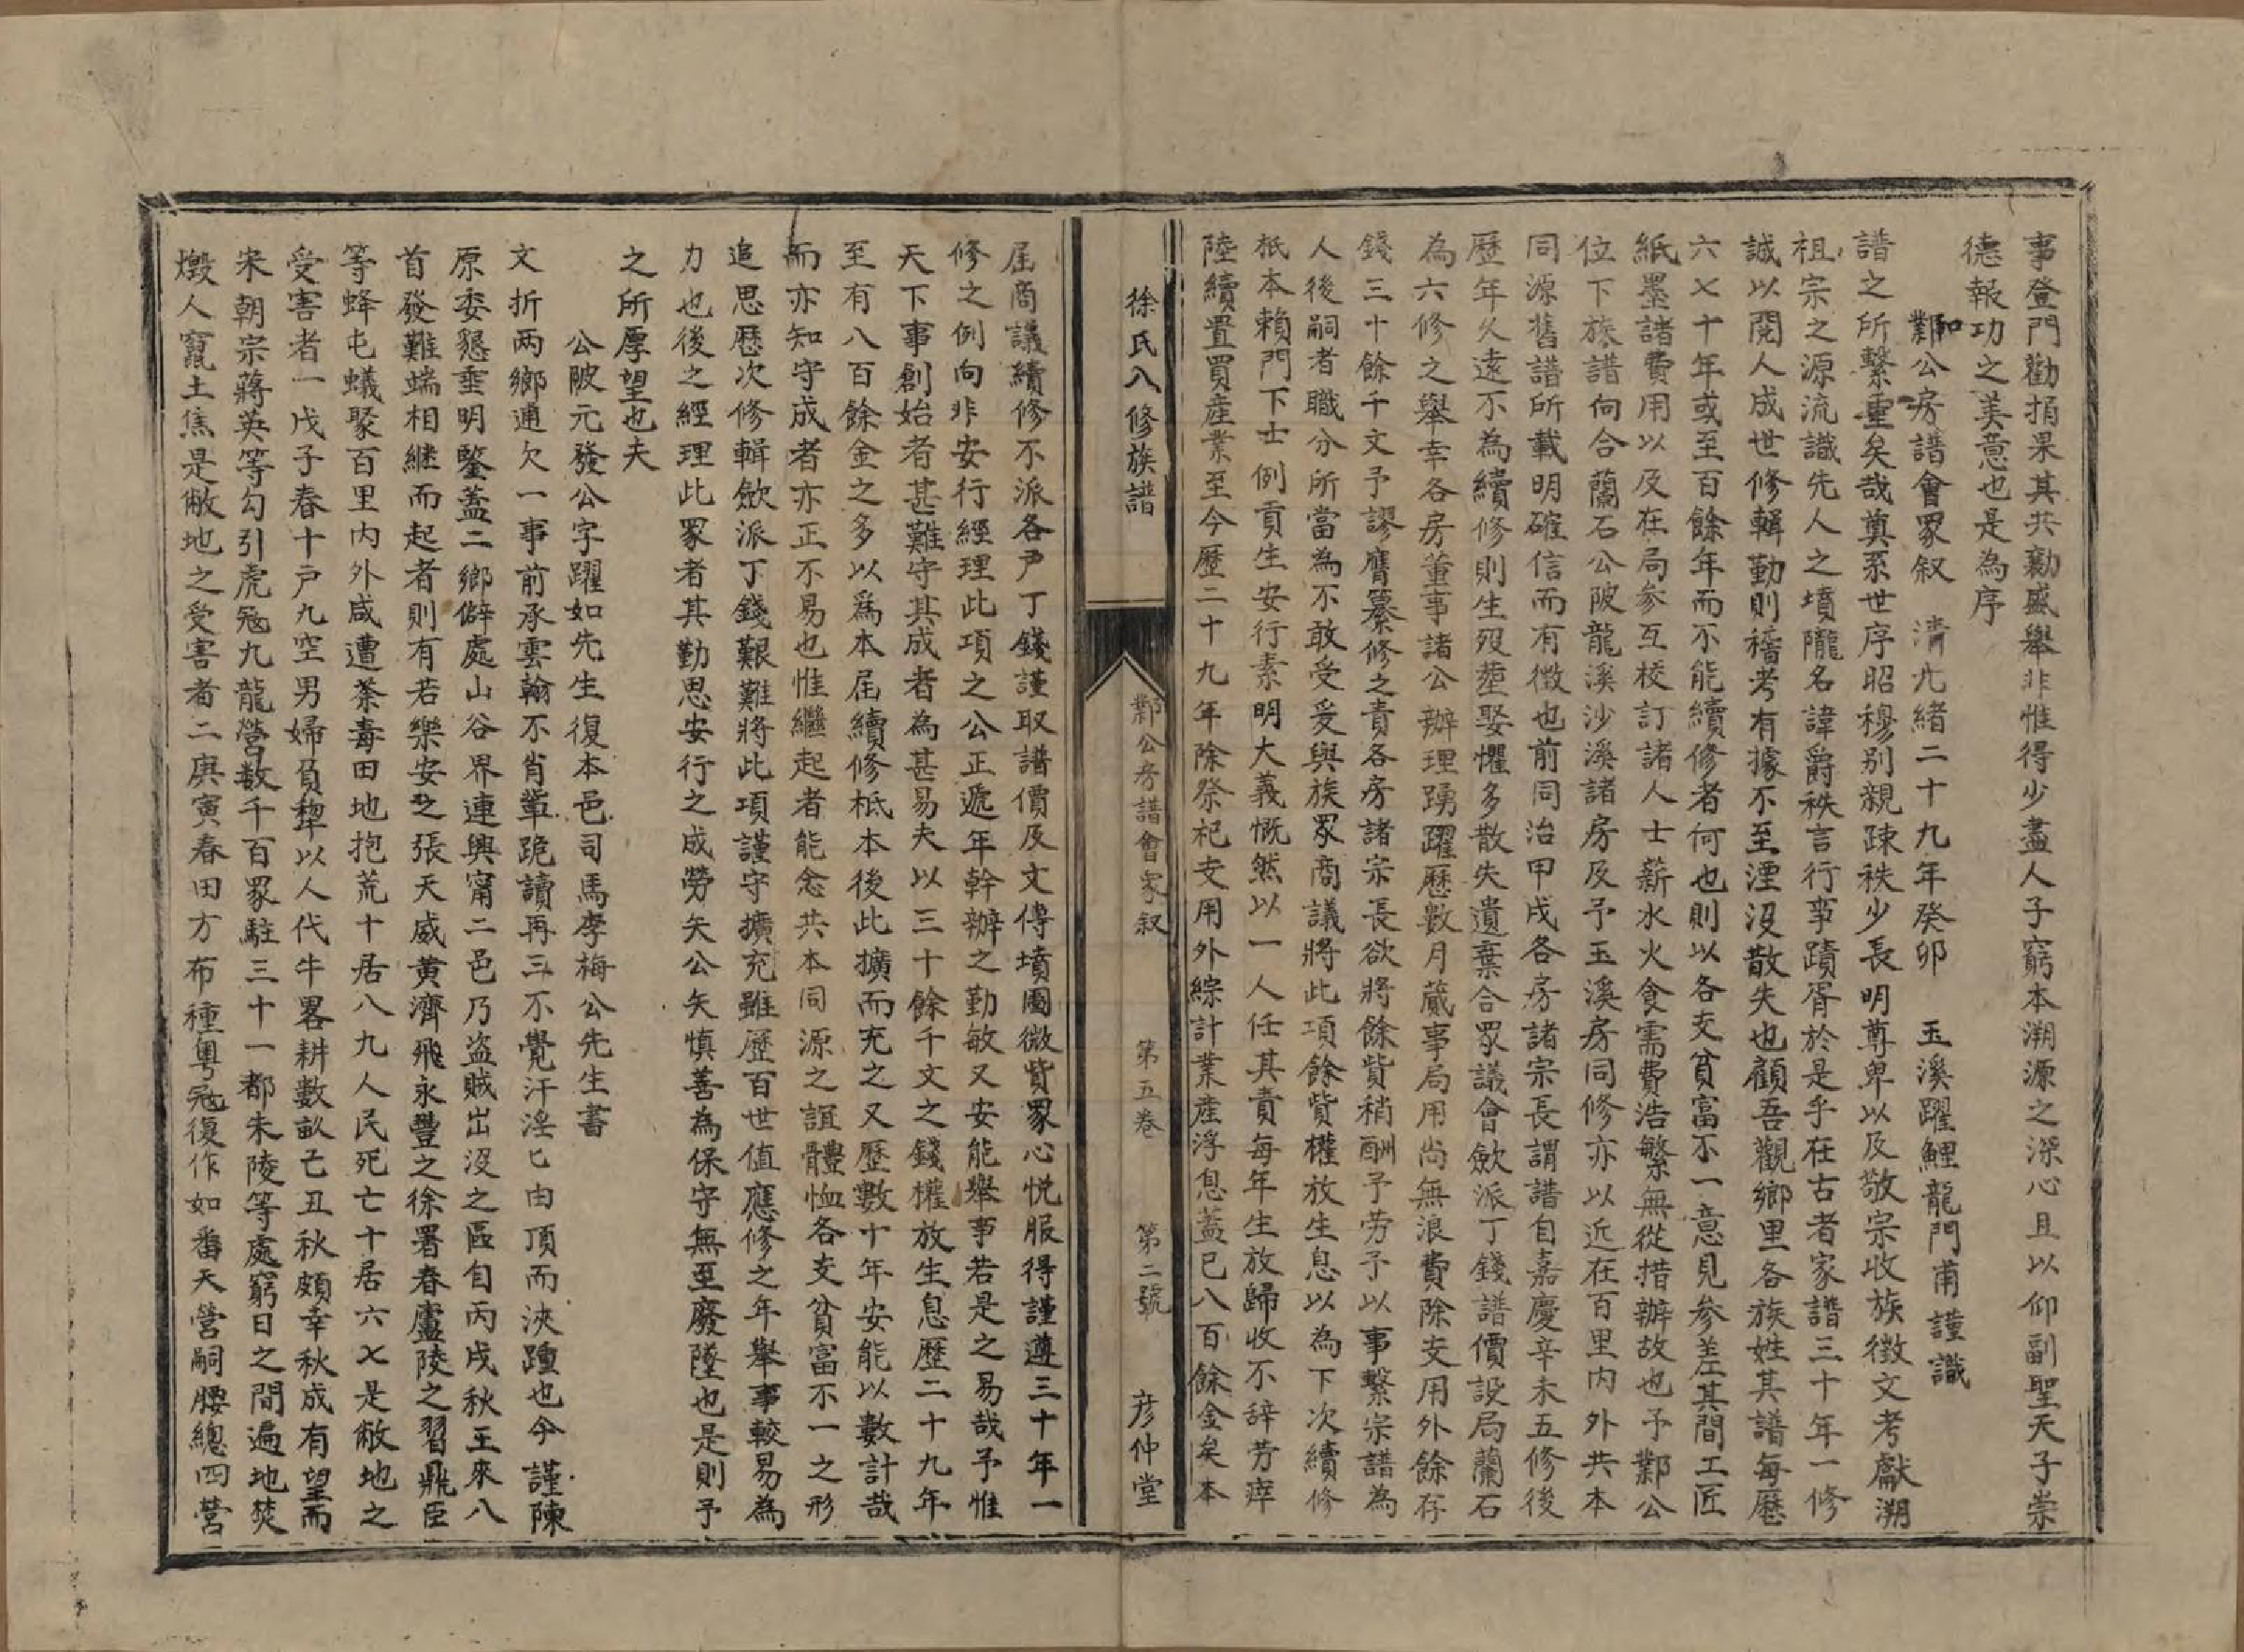 事登門勸捐果其共勷盛舉非惟得少盡人子窮本溯源之深心且以仰副聖天子崇
德報功之美意也是為序
和鄴公房譜會冢叙 清光緒二十九年癸卯 玉溪躍鯉龍門甫謹識
譜之所繫重矣哉奠系世序昭穆别親疎秩少長明尊卑以及敬宗收族徵文考獻溯
祖宗之源流識先人之墳隴名諱爵秩言行事蹟胥於是乎在古者家譜三十年一修
誠以閱人成世修輯勤則稽考有據不至湮沒散失也顧吾觀鄉里各族姓其譜每歷
六七十年或至百餘年而不能續修者何也則以各支貧富不一意見參差其間工匠
紙墨諸費用以及在局參互校訂諸人士薪水火食需費浩繁無從措辦故也予鄴公
位下族譜向合蘭石公陂龍溪沙溪諸房及予玉溪房同修亦以近在百里内外共本
同源舊譜所載明確信而有徵也前同治甲戌各房諸宗長謂譜自嘉慶辛未五修後
歷年久遠不為續修則生歿塟娶懼多散失遺棄合眾議會歛派丁錢譜價設局蘭石
為六修之舉幸各房董事諸公辦理踴躍歷數月蕆事局用尚無浪費除支用外餘存
錢三十餘千文予謬膺纂修之責各房諸宗長欲將餘貲稍酬予劳予以事繫宗譜為
人後嗣者職分所當為不敢受爰與族眾商議將此項餘貲權放生息以為下次續修
柢本賴門下士例貢生安行素明大義慨然以一人任其責每年生放歸收不辞劳瘁
陸續置買産業至今歷二十九年除祭祀支用外綜計業産浮息蓋已八百餘金矣本
徐氏八修族譜
鄴公房譜會冢叙 第五卷 第二號 彦仲堂
屆商議續修不派各戸丁錢謹取譜價及文傳墳圖微貲眾心悦服得謹遵三十年一
修之例向非安行經理此項之公正遞年幹辦之勤敏又安能舉事若是之易哉予惟
天下事創始者甚難守其成者為甚易夫以三十餘千文之錢權放生息歷二十九年
至有八百餘金之多以爲本屆續修柢本後此擴而充之又歷數十年安能以數計哉
而亦知守成者亦正不易也惟繼起者能念共本同源之誼體恤各支貧富不一之形
追思歷次修輯歛派丁錢艱難將此項謹守擴充雖歷百世值應修之年舉事較易為
力也後之經理此冢者其勤思安行之成勞矢公矢慎善為保守無至廢墜也是則予
之所厚望也夫
公陂元發公字躍如先生復本邑司馬李梅公先生書
文折两鄉逋欠一事前承雲翰不肖軰跪讀再三不覺汗淫匕由頂而浹踵也今謹陳
原委懇垂明鑒蓋二鄉僻處山谷界連興甯二邑乃盗賊出沒之區自丙戌秋王來八
首發難端相継而起者則有若樂安之張天威黄濟飛永豐之徐署春盧陵之習鼎臣
等蜂屯蟻聚百里内外咸遭荼毒田地抱荒十居八九人民死亡十居六七是敝地之
受害者一戊子春十戸九空男婦負犂以人代牛畧耕數畝乞丑秋頗幸秋成有望而
宋朝宗蔣英等勾引虎冦九龍營数千百眾駐三十一都朱陵等處窮日之間遍地焚
燬人竄土焦是敝地之受害者二庚寅春田方布種粤冦復作如番天營嗣腰總四營